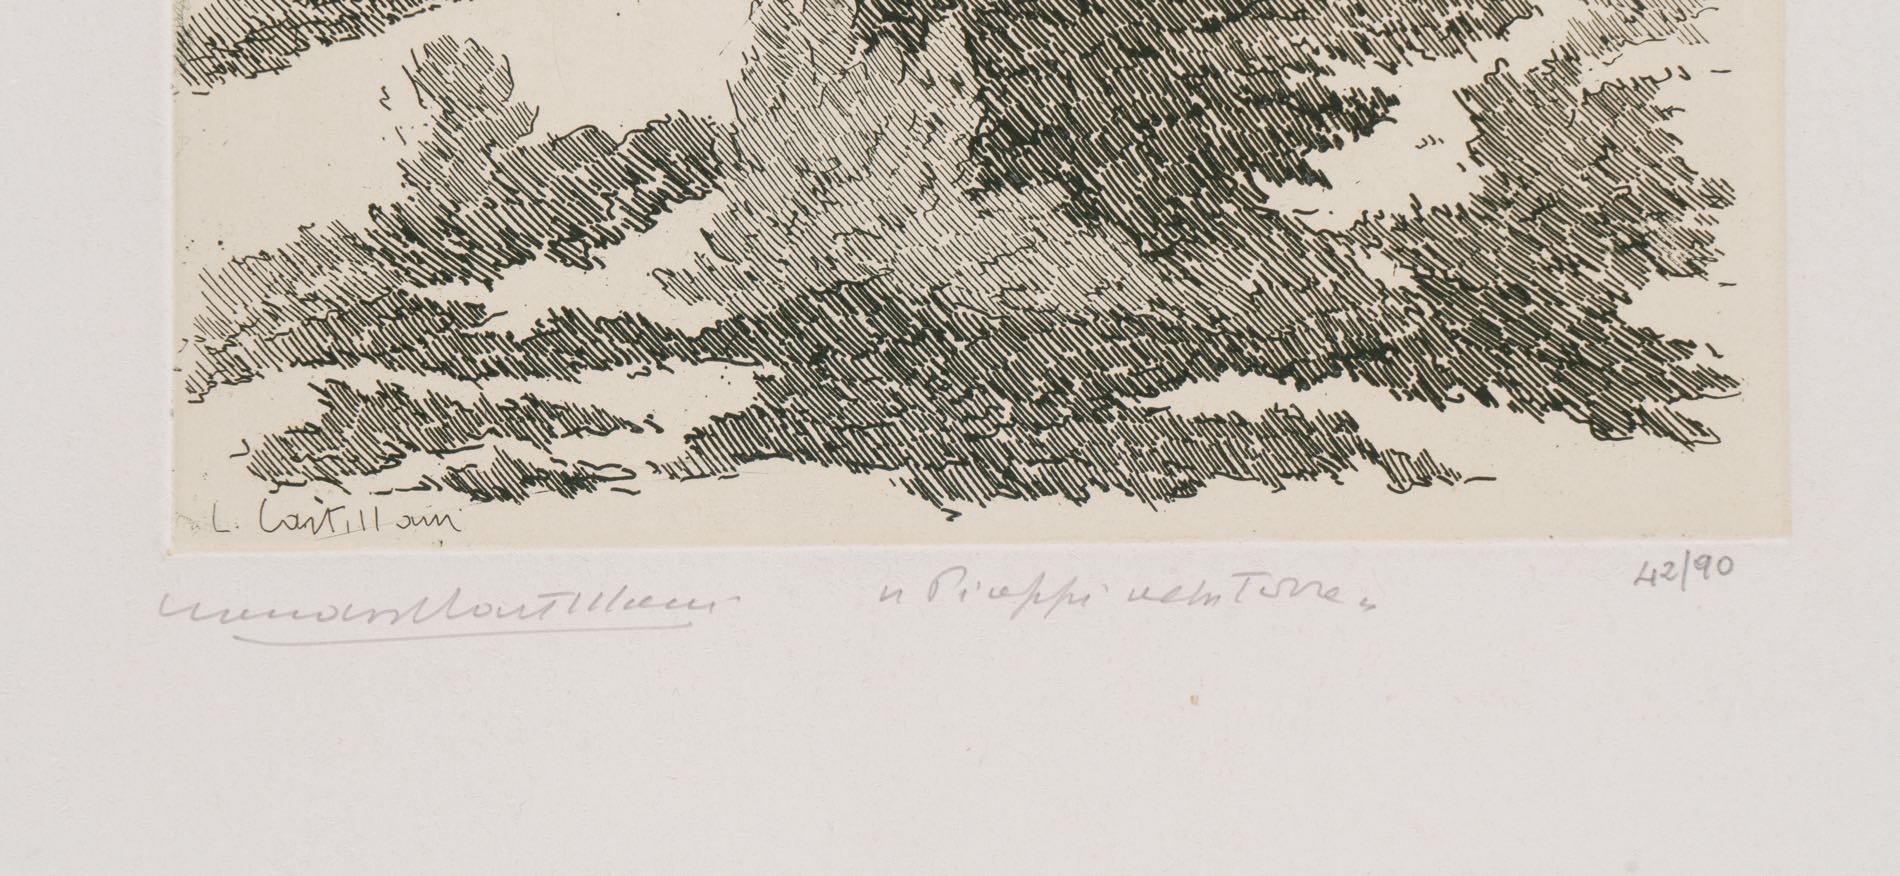 L. Castellani
Leonardo Castellani „ Pioppi nella Torre „ 42/90